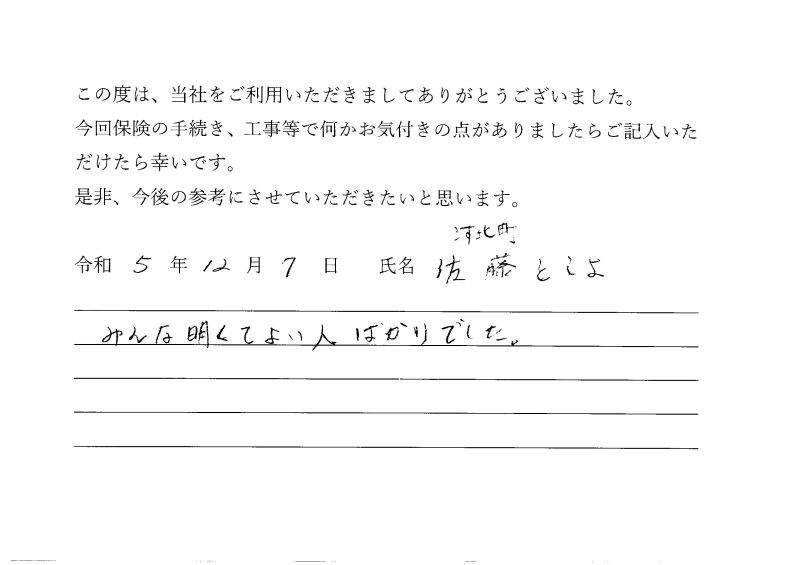 この度は、当社をご利用いただきましてありがとうございました。
今回保険の手続き、工事等で何かお気付きの点がありましたらご記入いた
だけたら幸いです。
是非、今後の参考にさせていただきたいと思います。
河北町
令和 5 年 12 月 7 日 氏名 佐藤としよ
みんな明くてよい人ばかりでした。